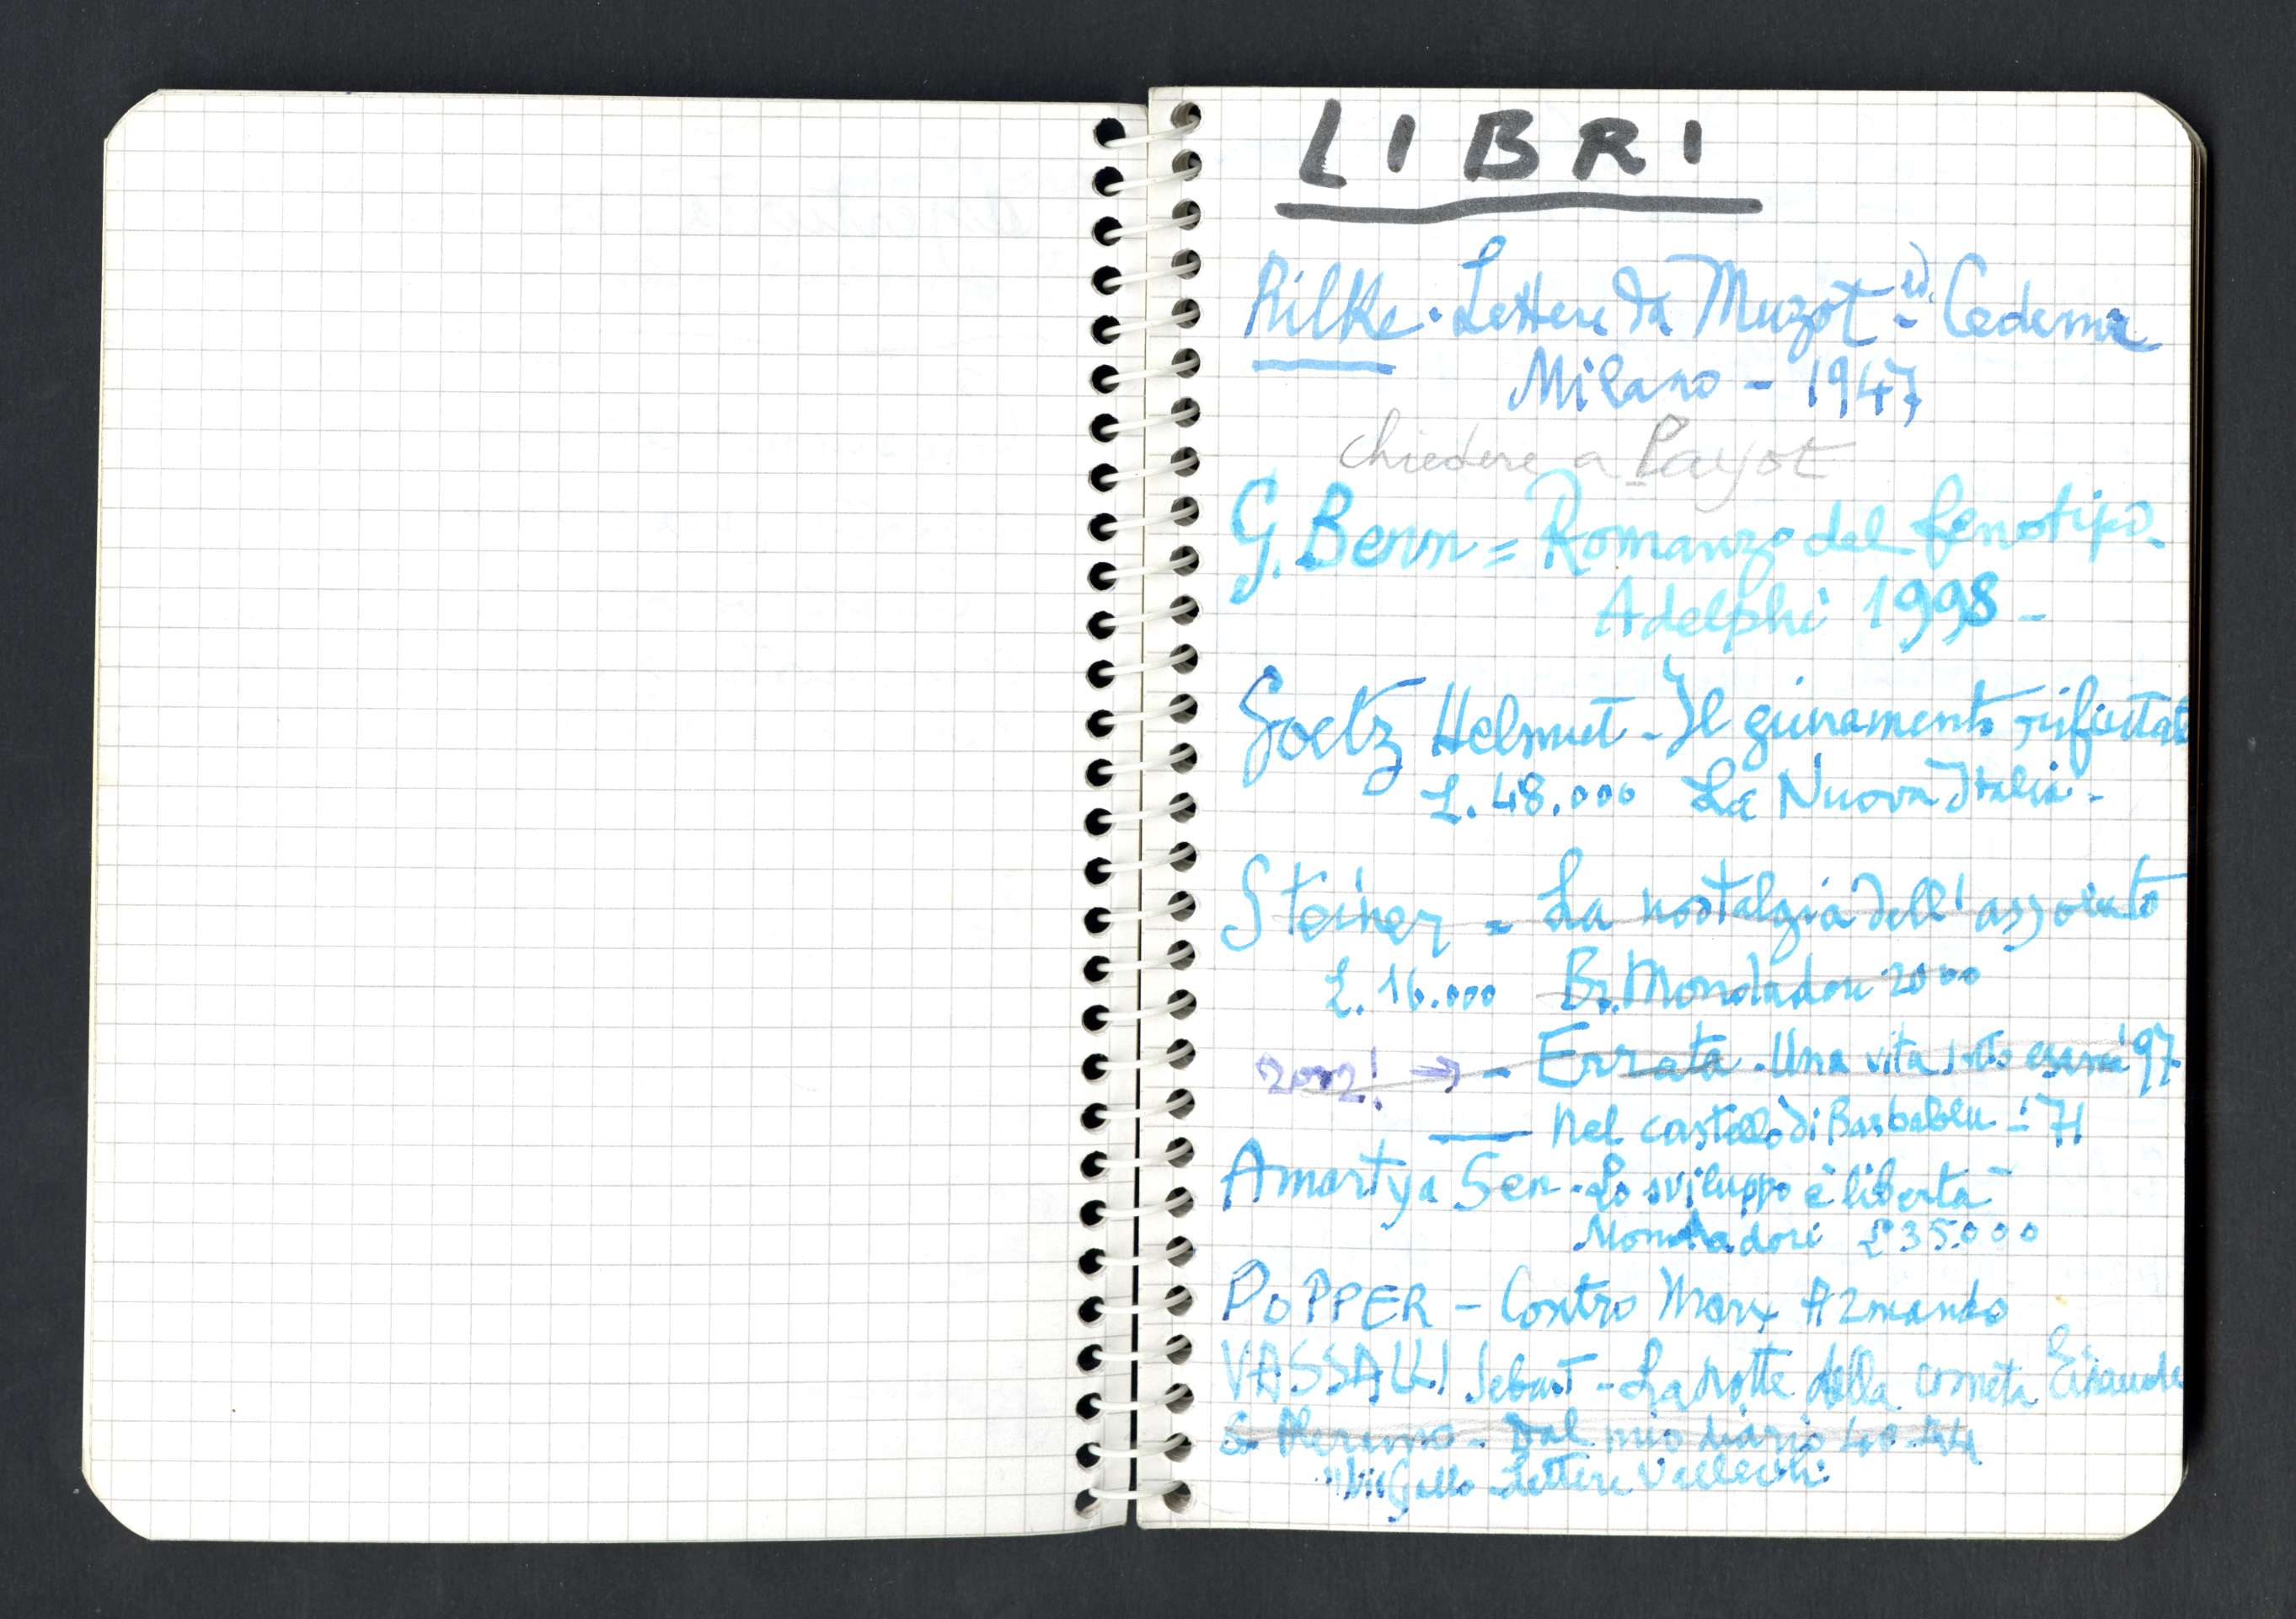 LIBRI
Rilke. Lettere da Muzot - ed. Cederna
Milano - 1947
chiedere a Payot
G. Benn = Romanzo del fenotipo -
Adelphi 1998 -
Goetz Helmut - Il giuramento rifiutato
L. 48.000 La Nuova Italia -
Steiner = La nostalgia dell'assoluto
L. 16.000 B. Mondadori 2000
2002! → - Errata - Una vita sotto esame '97
— Nel castello di Barbablu - '71
Amartya Sen - Lo sviluppo è libertà
Mondadori £ 35.000
POPPER - Contro Marx Armando
VASSALLI Sebast - La notte della cometa Einaudi
S. Aleramo - Dal mio diario 40-44
Lettere Vallecchi